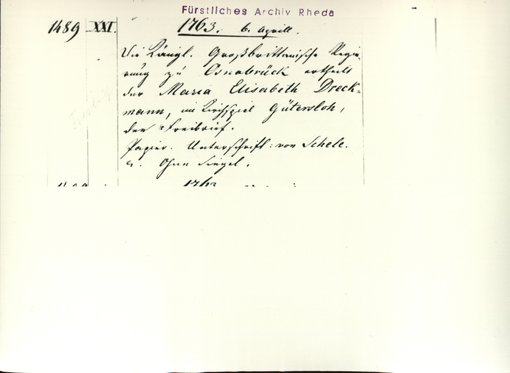 Fürstliches Archiv Rheda
1489 XXI. 1763. 6. April.
Die Königl. Großbrittanische Regie-
rung zu Osnabrück ertheilt
der Maria Elisabeth Dreck-
mann, im Kirchspiel Gütersloh,
den Freibrief.
Papier. Unterschrift: von Schele.
Ohne Siegel.
1763